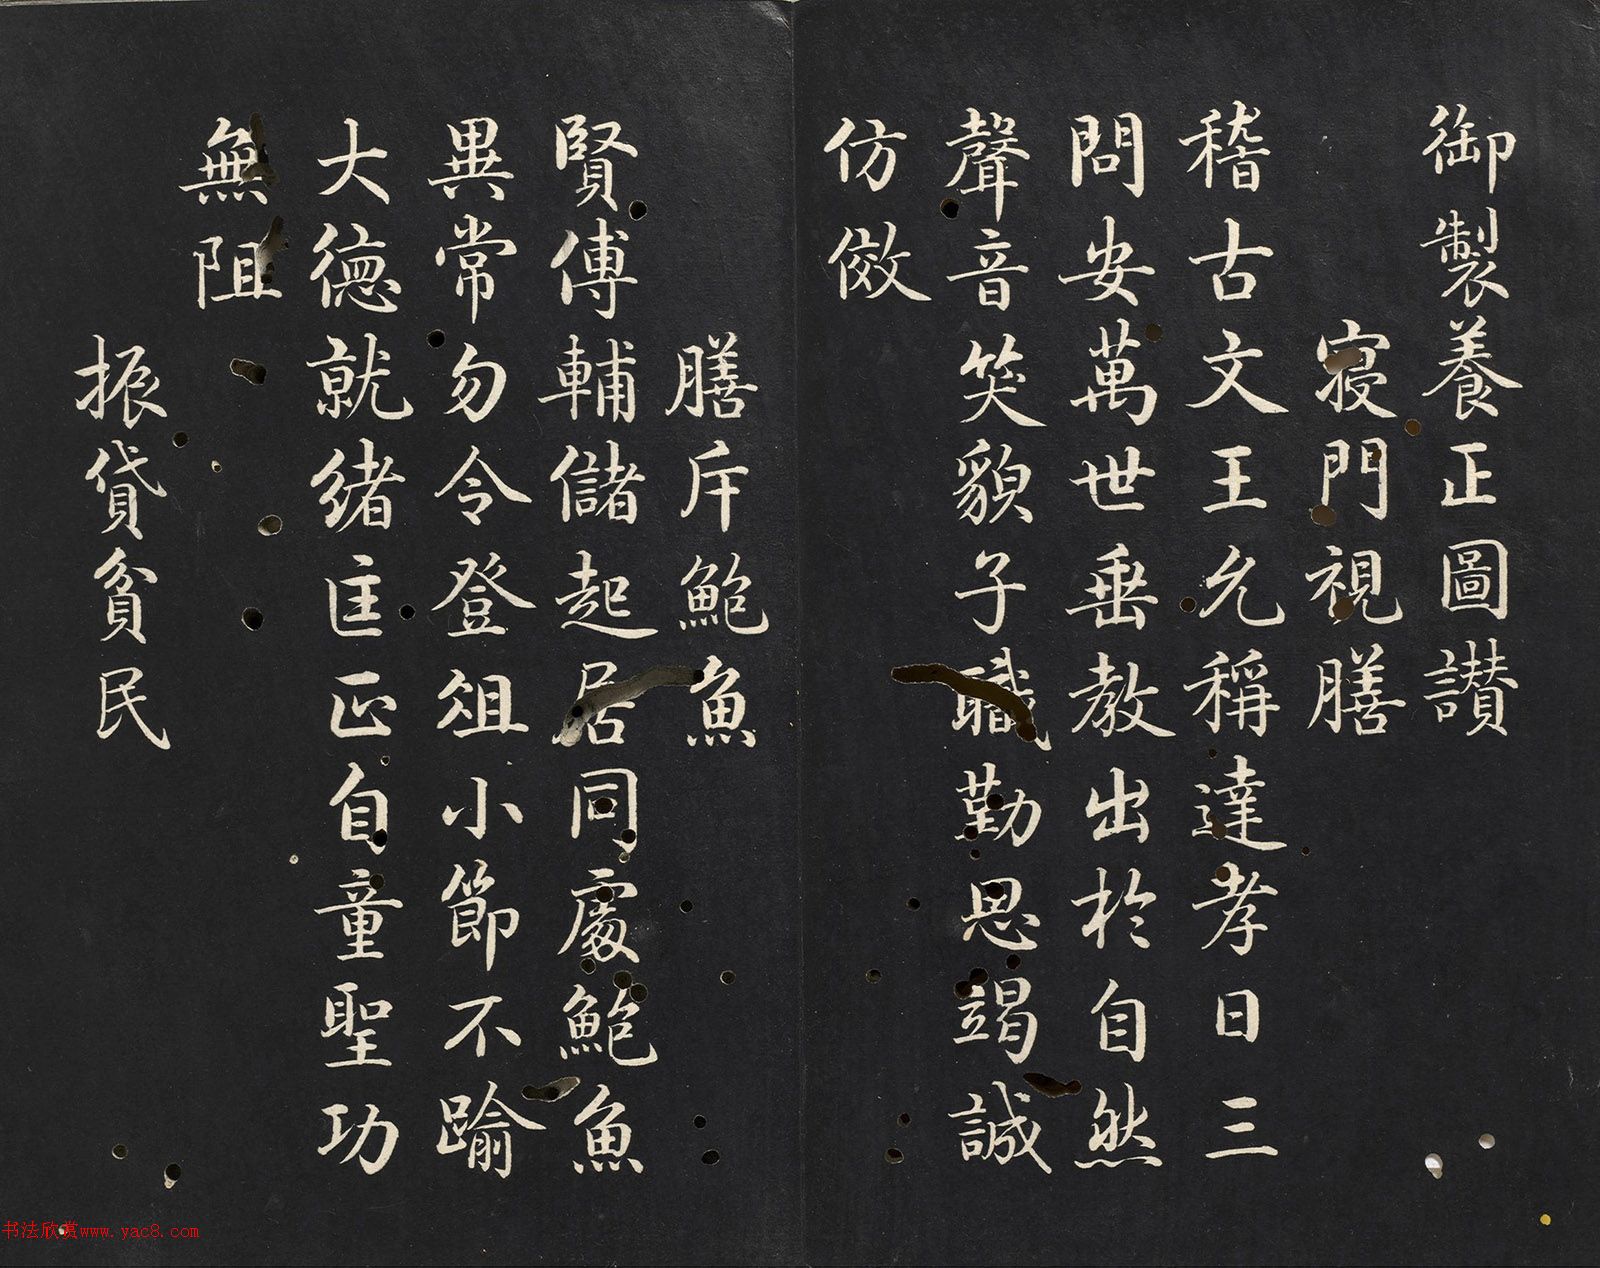 御製養正圖讃
寢門視膳
稽古文王允稱達孝日三
問安萬世垂教出於自然
聲音笑貌子職勤思竭誠
仿傚
膳斥鮑魚
賢傅輔儲起居同處鮑魚
異常勿令登俎小節不踰
大德就緒匡正自童聖功
無阻
振貸貧民
书法欣赏www.yac8.com